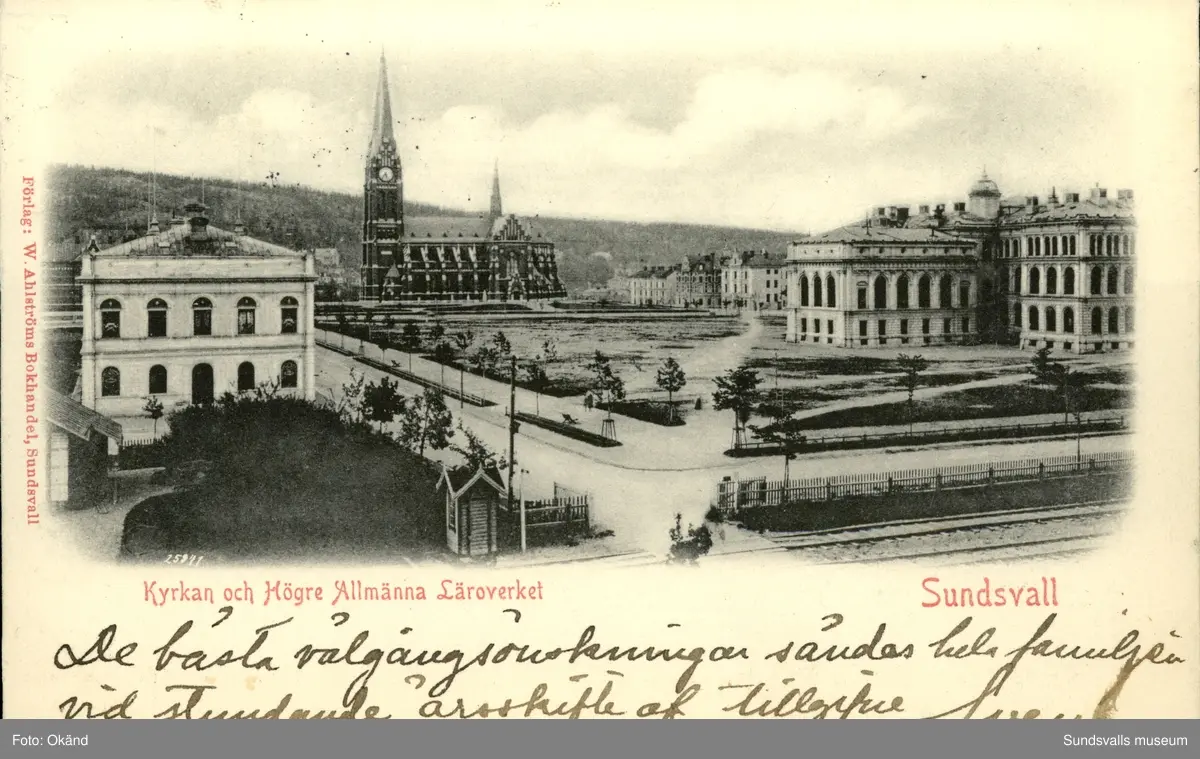 Förlag: W. Ahlströms Bokhandel, Sundsvall
25877
Kyrkan och Högre Allmänna Läroverket
Sundsvall
De bästa välgångsönskningar sändes hela familjen
vid stundande årsskifte af tillgifne Sven
Foto: Okänd
Sundsvalls museum